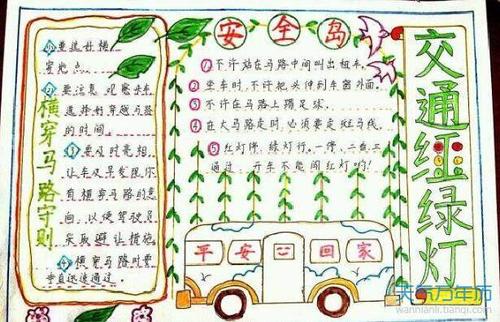 横穿马路守则
①要选好横
穿地点。
②要注意观察来车
选择好穿越马路
的时间。
③要及时亮相,
让车及早发现你
有横穿马路的意
向,以便驾驶员
采取避让措施。
④横穿马路时要
垂直迅速通过。
安全岛
①不许站在马路中间叫出租车。
②坐车时,不许把头伸到车窗外面。
③不许在马路上踢足球。
④在大马路走时,必须要走斑马线。
⑤红灯停,绿灯行,一停,二看,三
通过,开车不能闯红灯哟!
平安回家
交通红绿灯
天气万年历
wannianli.tianqi.com